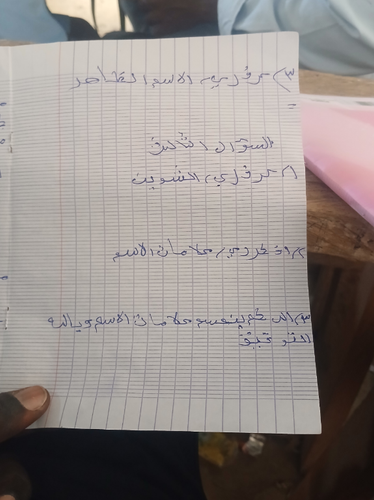 ٣) عرفي، الاسم الظاهر
السؤال الثالث
١) عرفي، التنوين
٢) اذكري، علامات الاسم
٣) إلى كم ينقسم علامات الاسم وبالله
التوفيق